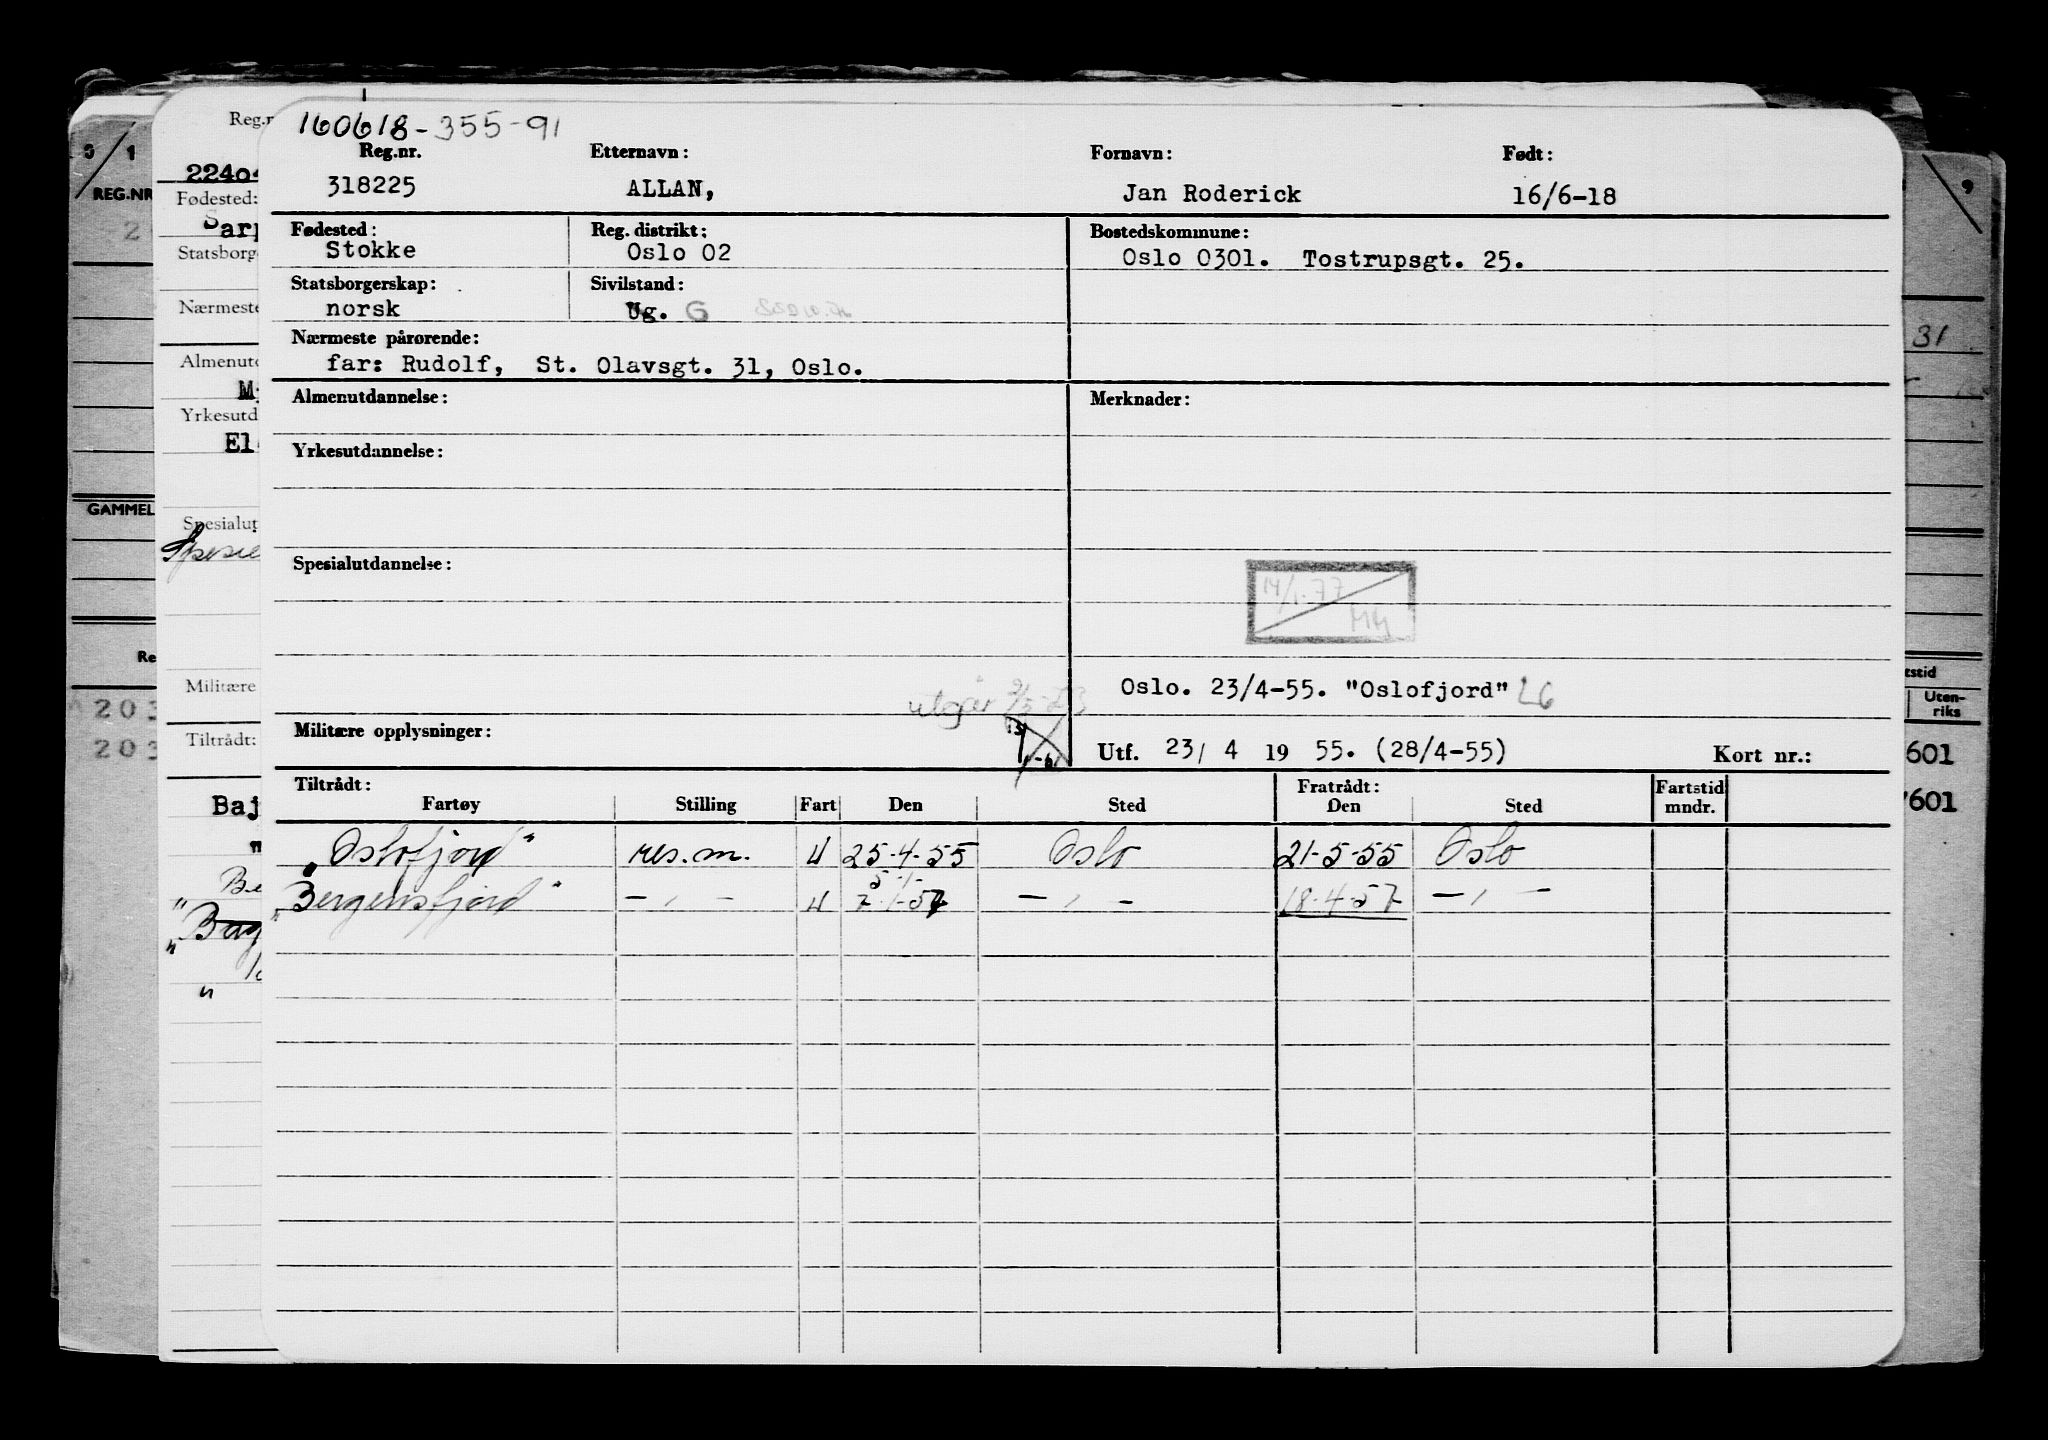 160618-355-91
Reg.nr. Etternavn: Fornavn: Født:
318225 ALLAN, Jan Roderick 16/6-18
Fødested: Reg. distrikt: Bostedskommune:
Stokke Oslo 02 Oslo 0301. Tostrupsgt. 25.
Statsborgerskap: Sivilstand:
norsk Ug. G
Nærmeste pårørende:
far: Rudolf, St. Olavsgt. 31, Oslo.
Almenutdannelse: Merknader:
Yrkesutdannelse:
Spesialutdannelse:
14/1.77
MM
Oslo. 23/4-55. "Oslofjord" LG
utgår
Militære opplysninger:
Utf. 23/ 4 19 55. (28/4-55) Kort nr.:
Tiltrådt: Fratrådt: Fartstid
Fartøy Stilling Fart Den Sted Den Sted mndr.
„Oslofjord" res.m. U 25-4-55 Oslo 21-5-55 Oslo
„Bergensfjord" — , — U — , — 18-4-57 — , —
Reg.n
2240
Fødested:
Sarp
Statsborge
Nærmeste
Almenutd
My
Yrkesutd
El
Spesialut
Spesie
Militære
Tiltrådt:
Baj
"
Be
„Bag
"
3/1
REG.NR
2
GAMMEL
Re
203
203
9
31
tstid
Uten-
riks
601
601